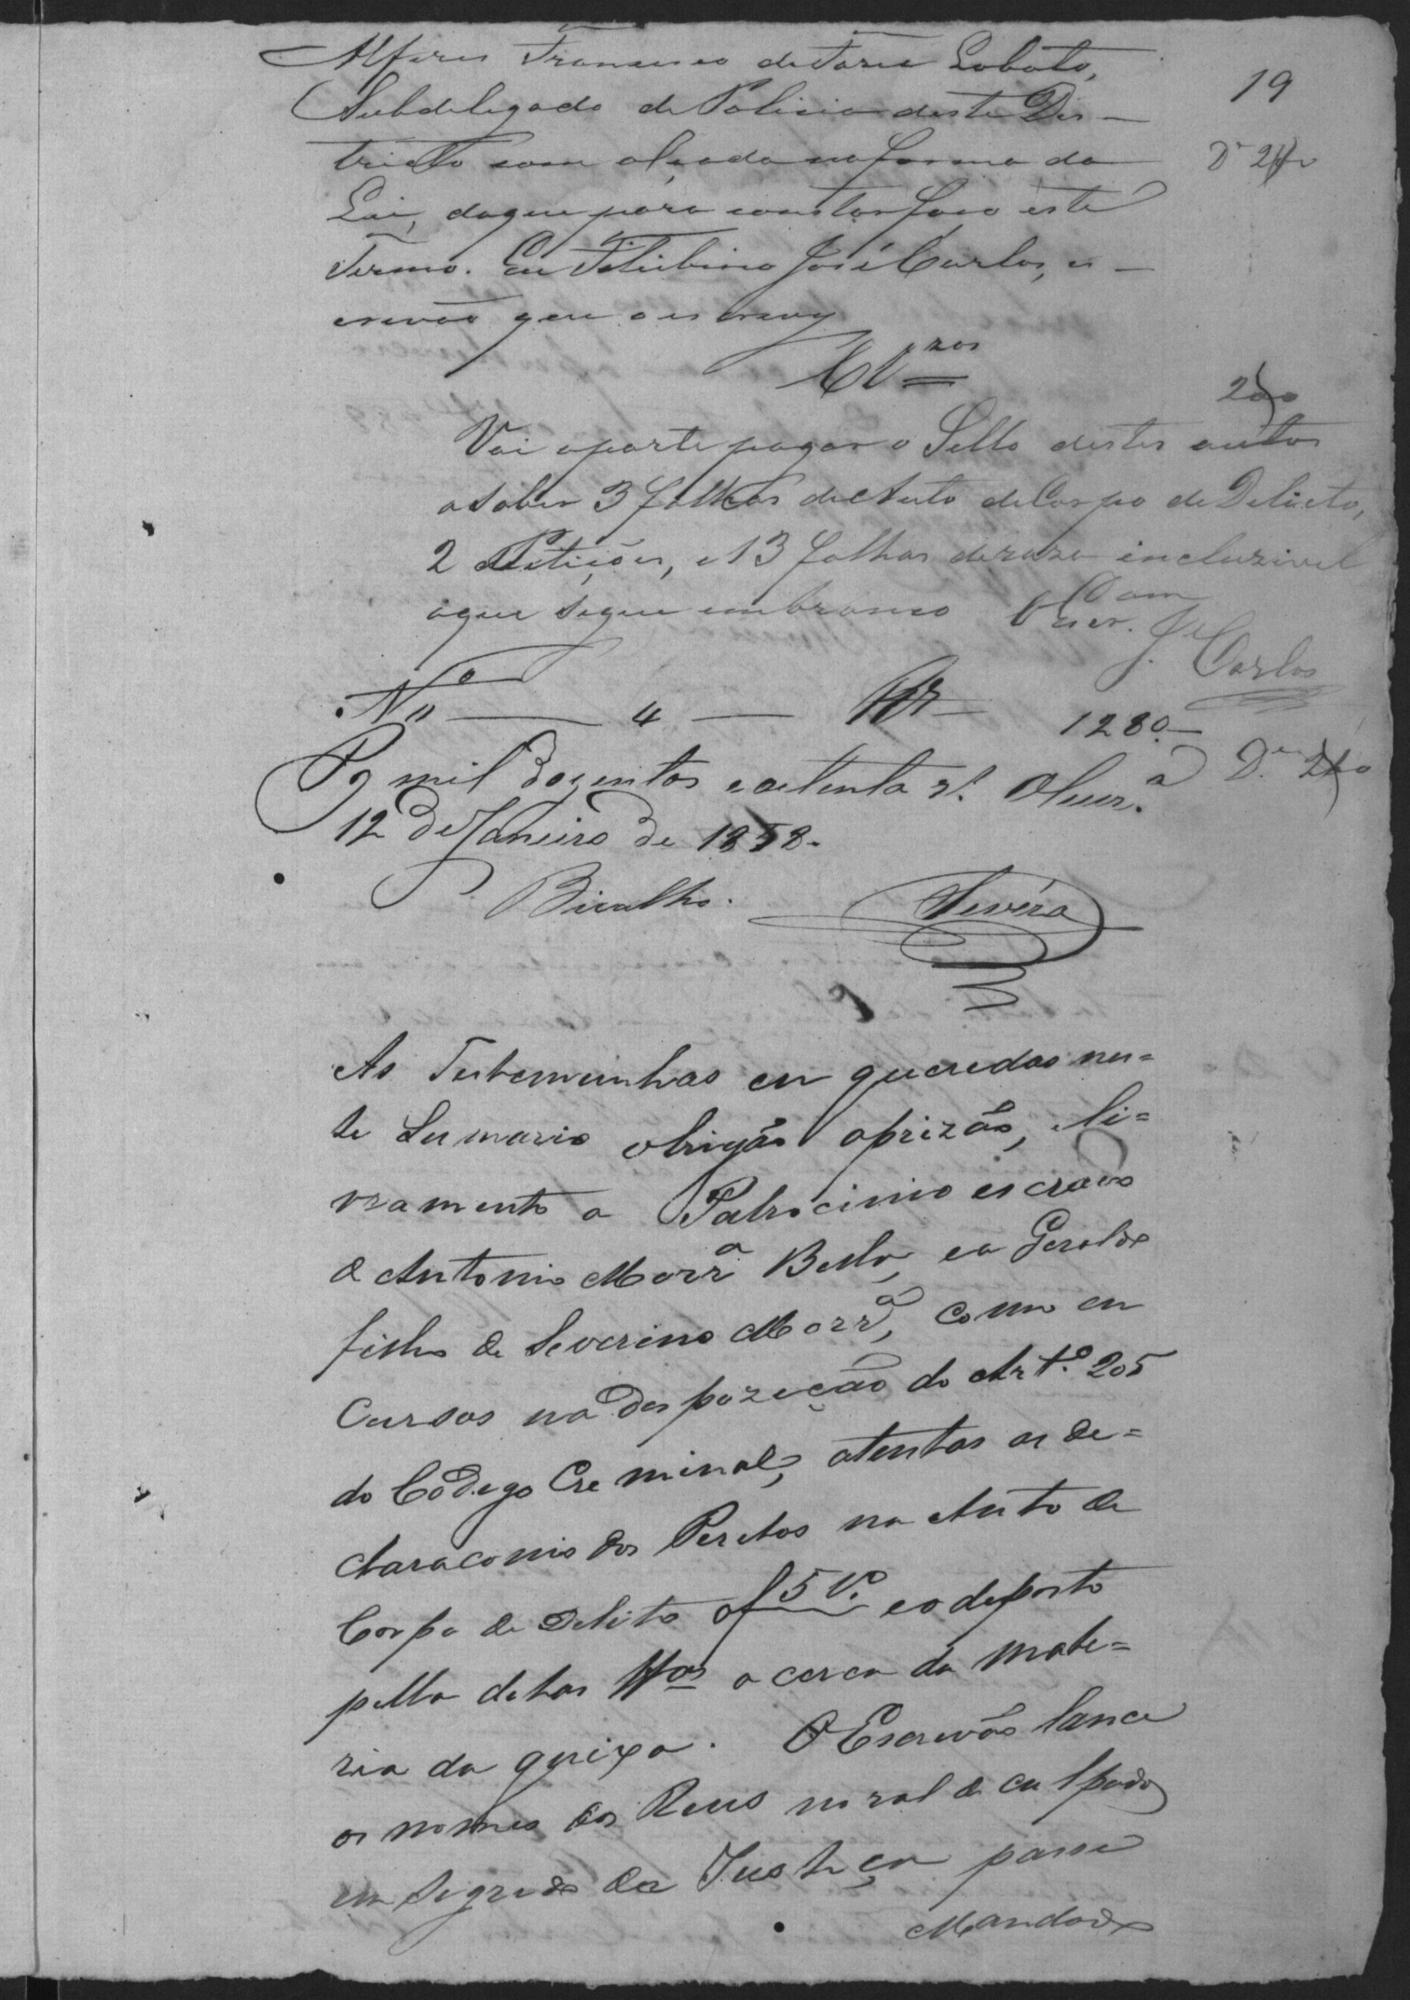 Alferes Francisco de Faria Lobato,
19
Subdelegado de Policia deste Des-
tricto com alçada na forma da
Lei, do que para constar faço este
Termo. Eu José Carlos, es-
crivão que o escrevy
Cl.zos
200
Vai a parte pagar o Sello destes autos
a saber 3 folhas de Auto de Corpo de Delicto,
2 Petições, e 13 folhas de raza incluzivel
a que segue em branco O Escr.am
J.e Carlos
N.o 4 — Rs 1280
Pg mil dozentos e oitenta rs. Oliver.a
12 de Janeiro de 1858.
Bicalho. Severo
As Testemunhas en queredas nes=
te Sumario obrigão a prizão, e li=
vramento a Patrocinio escravo
de Antonio Morr.a Bello, e a Geraldo
filho de Severino Morr.a, como en
Cursos na Despozição do Art.o 205
do Codego Creminal, atentas as de=
claracomis dos Peretos no Auto de
Corpo de delito af 5 v.o e o deposto
pella dictas tt.as a cerca da mate=
ria da queixa. O Escrivão lance
os nomes dos Reus no rol de culpados
em segredo da Justiça passe
Mandado